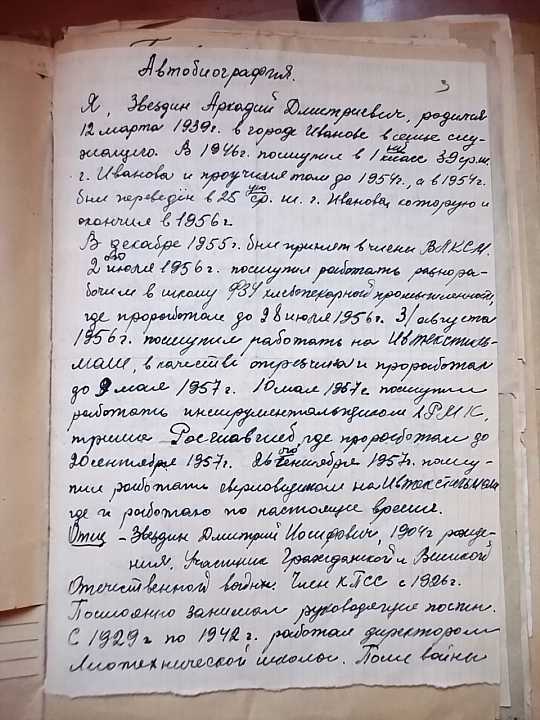 Автобиография.
3
Я, Звездин Аркадий Дмитриевич, родился
12 марта 1939г. в городе Иванове в семье слу-
жащего. В 1946г. поступил в 1ый класс 39 ср.ш.
г. Иванова и проучился там до 1954г., а в 1954г.
был переведён в 25ую ср. ш. г. Иванова, которую и
окончил в 1956г.
В декабре 1955г. был принят в члены ВЛКСМ.
2го июля 1956г. поступил работать разнора-
бочим в школу ФЗУ хлебопекарной промышленности,
где проработал до 28 июля 1956г. 31 августа
1956г. поступил работать на Ивтекстиль-
маш, в качестве и проработал
до 9 мая 1957г. 10 мая 1957г. поступил
работать инструментальщиком
треста Росглавхлеб, где проработал до
20 сентября 1957г. 26го сентября 1957г. посту-
пил работать сверловщиком на Ивтекстильмаш
где и работаю по настоящее время.
Отец - Звездин Дмитрий Иосифович, 1904г рожде-
ния. Участник Гражданской и Великой
Отечественной войны. Член КПСС с 1926г.
Постоянно занимал руководящие посты.
С 1929г по 1942г. работал директором
школы. После войны